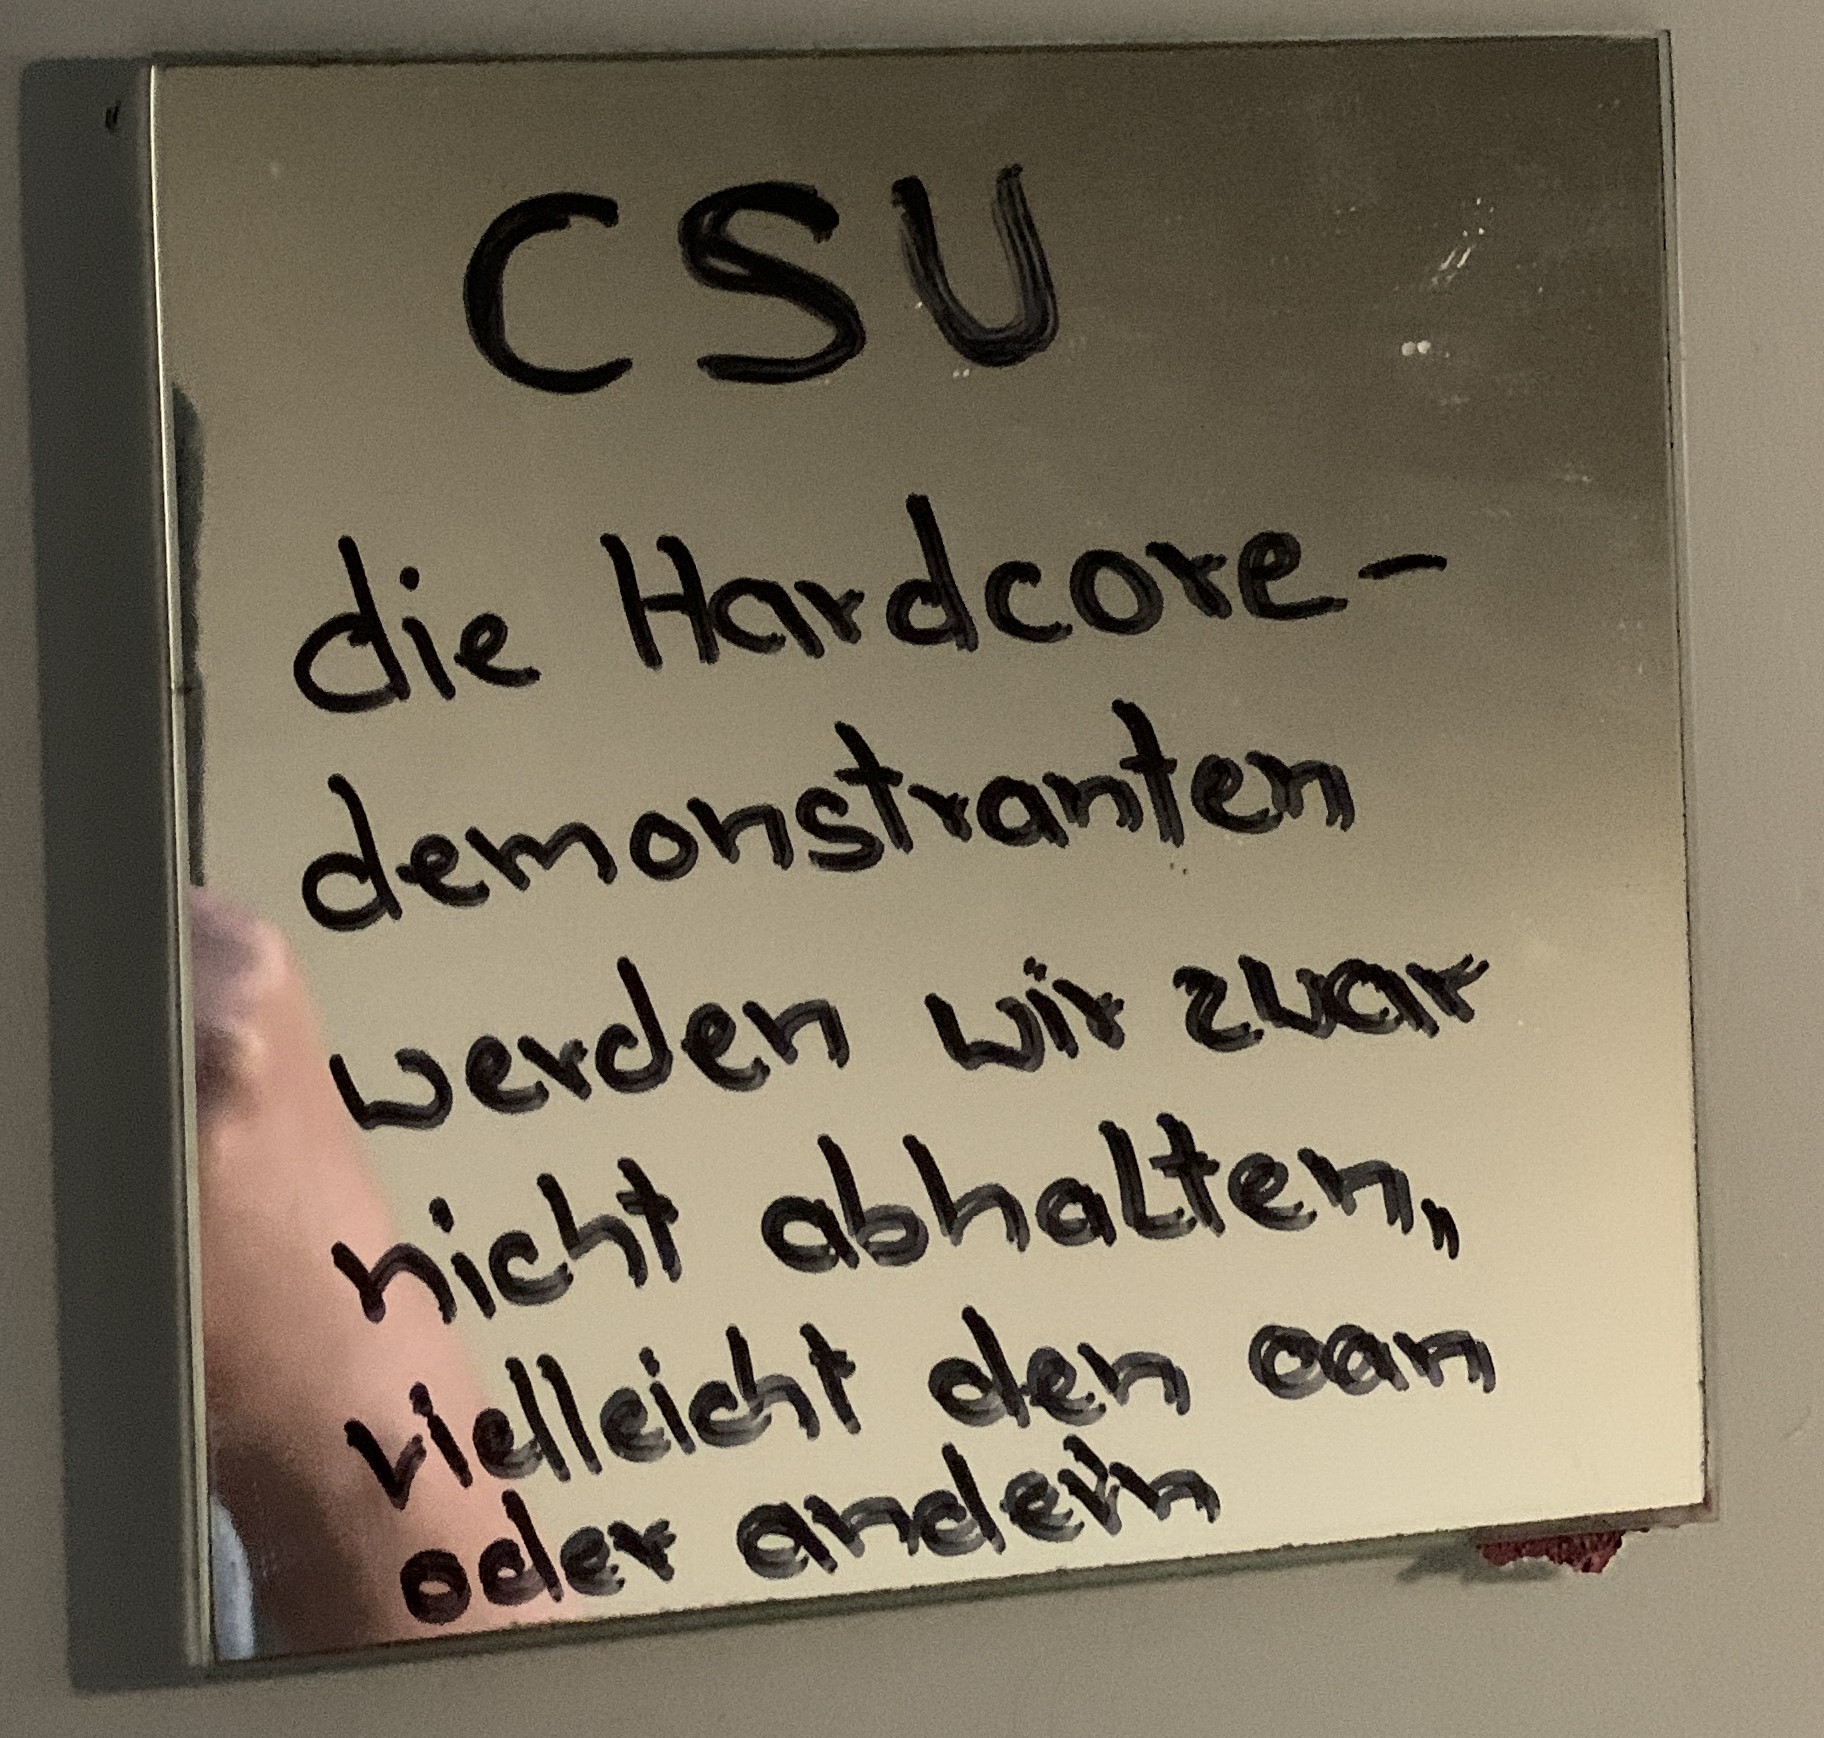 CSU
die Hardcore-
demonstranten
werden wir zwar
nicht abhalten,
vielleicht den oan
oder andern